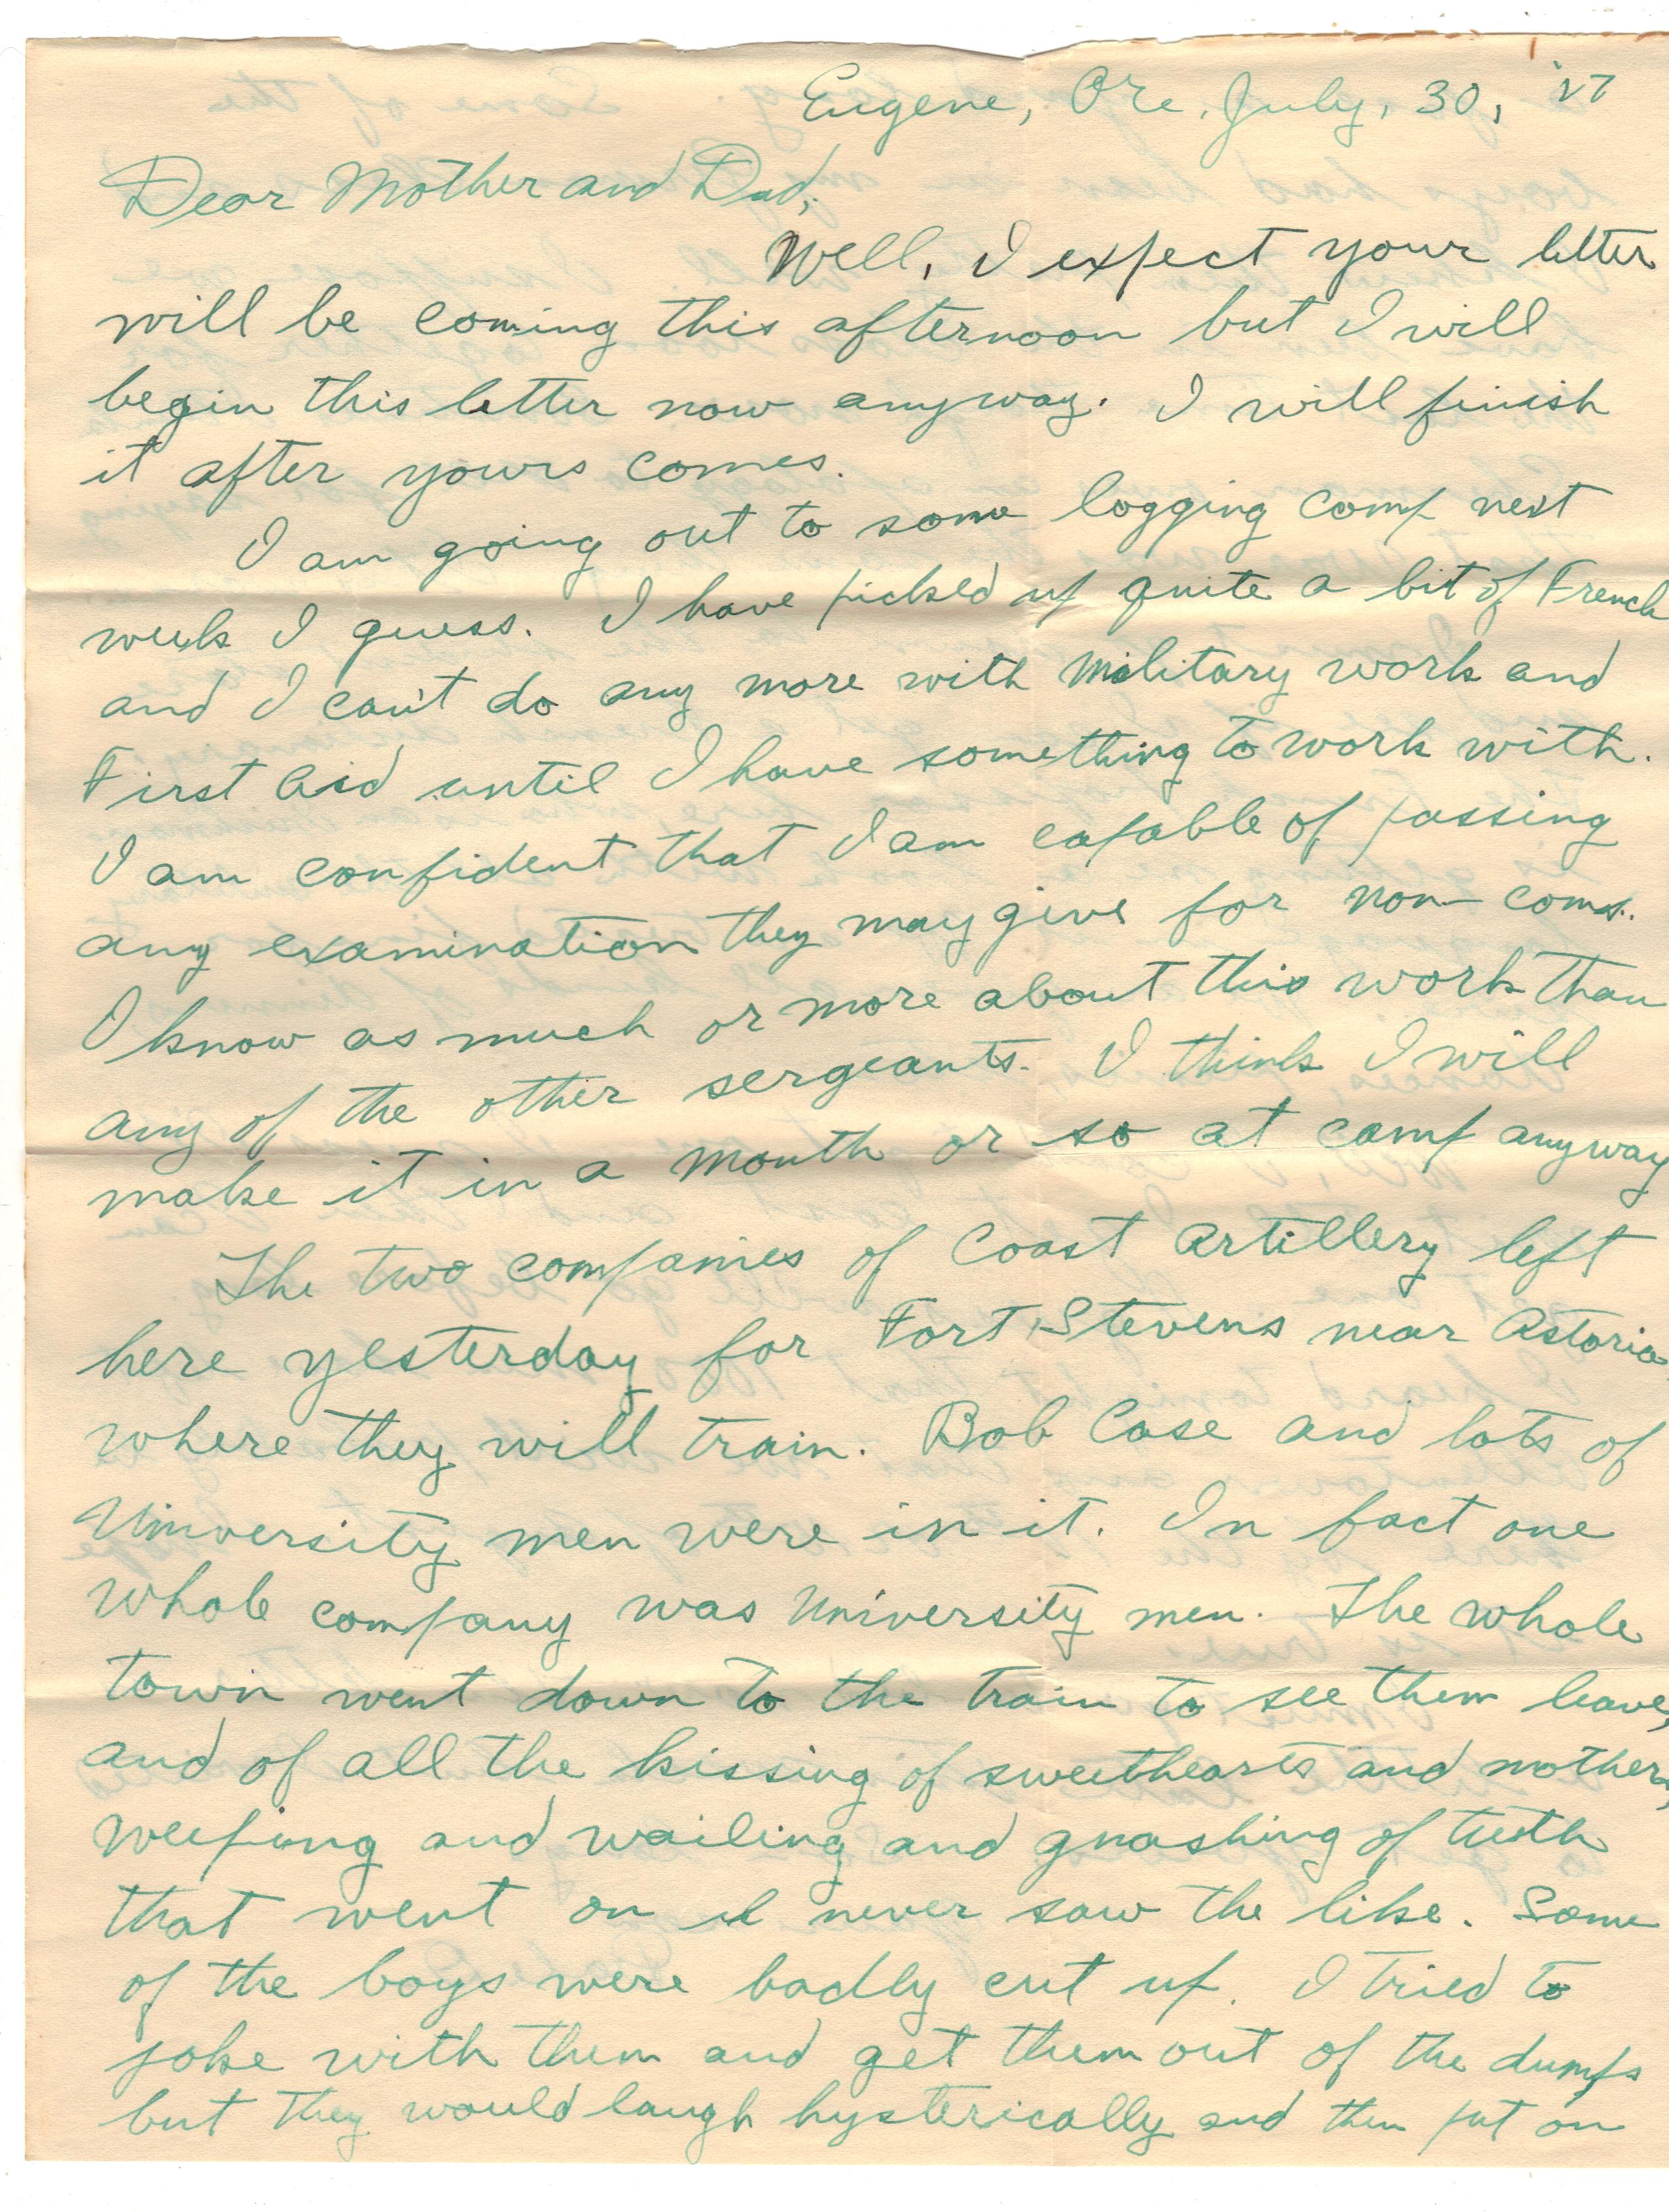 Eugene, Ore, July, 30, '17
Dear Mother and Dad,
Well, I expect your letter
will be coming this afternoon but I will
begin this letter now anyway. I will finish
it after yours comes.
I am going out to some logging camp next
week I guess. I have picked up quite a bit of French
and I can't do any more with military work and
First Aid until I have something to work with.
I am confident that I am capable of passing
any examination they may give for non-coms.
I know as much or more about this work than
any of the other sergeants. I think I will
make it in a month or so at camp anyway
The two companies of Coast Artillery left
here yesterday for Fort Stevens near Astoria
where they will train. Bob Case and lots of
University men were in it. In fact one
whole company was University men. The whole
town went down to the train to see them leave,
and of all the kissing of sweethearts and mothers,
weeping and wailing and gnashing of teeth
that went on I never saw the like. Some
of the boys were badly cut up. I tried to
joke with them and get them out of the dumps
but they would laugh hysterically and then put on